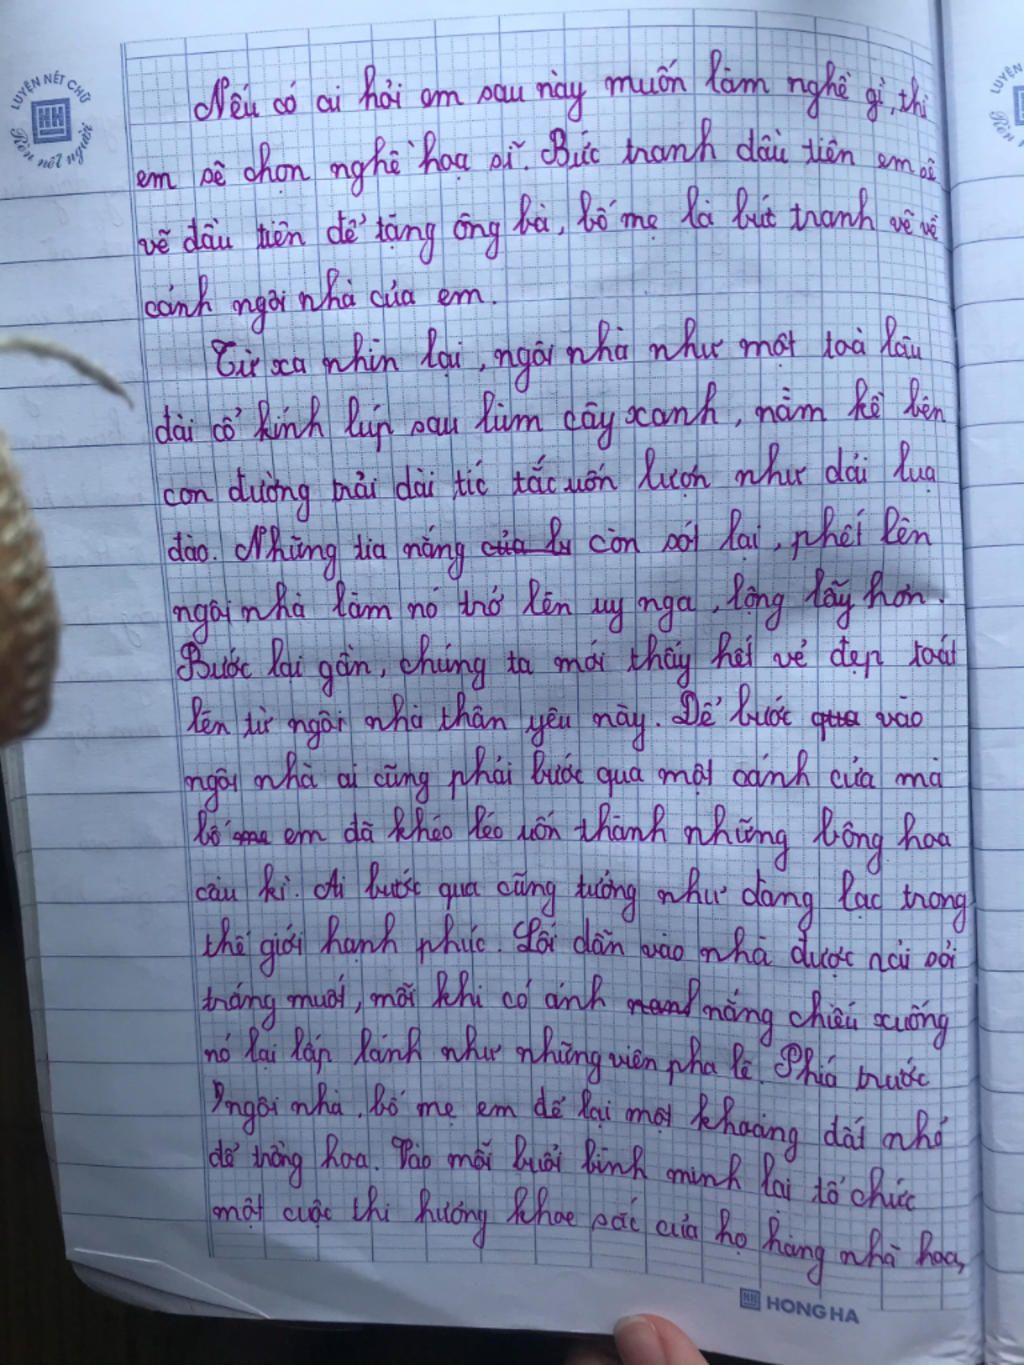 LUYỆN NÉT CHỮ
Rèn nết người
Nếu có ai hỏi em sau này muốn làm nghề gì, thì
em sẽ chọn nghề hoạ sĩ. Bức tranh đầu tiên em sẽ
vẽ đầu tiên để tặng ông bà, bố mẹ là bức tranh vẽ về
cảnh ngôi nhà của em.
Từ xa nhìn lại, ngôi nhà như một toà lâu
đài cổ kính lúp sau lùm cây xanh, nằm kề bên
con đường trải dài tíc tắc uốn lượn như dải lụa
đào. Những tia nắng của lu còn sót lại, phết lên
ngôi nhà làm nó trở lên uy nga, lộng lẫy hơn.
Bước lại gần, chúng ta mới thấy hết vẻ đẹp toát
lên từ ngôi nhà thân yêu này. Để bước qua vào
ngôi nhà ai cũng phải bước qua một cánh cửa mà
bố mẹ em đã khéo léo uốn thành những bông hoa
cầu kì. Ai bước qua cũng tưởng như đang lạc trong
thế giới hạnh phúc. Lối dẫn vào nhà được rải sỏi
trắng muốt, mỗi khi có ánh nắng chiếu xuống
nó lại lấp lánh như những viên pha lê. Phía trước
ngôi nhà, bố mẹ em để lại một khoảng đất nhỏ
để trồng hoa. Vào mỗi buổi bình minh lại tổ chức
một cuộc thi hương khoe sắc của họ hàng nhà hoa,
HONG HA